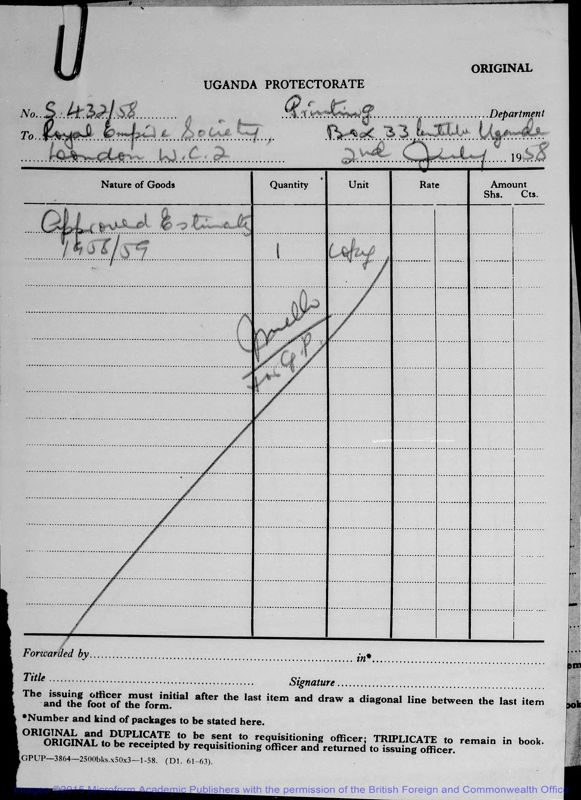 ORIGINAL
UGANDA PROTECTORATE
No. S 432/58 Printing Department
To Royal Empire Society, Box 33 Entebbe Uganda
London W.C.2 2nd July 1958
Nature of Goods Quantity Unit Rate Amount
Shs. Cts.
Approved Estimates
1958/59 1 copy
for G.P.
Forwarded by in*
Title Signature
The issuing officer must initial after the last item and draw a diagonal line between the last item
and the foot of the form.
*Number and kind of packages to be stated here.
ORIGINAL and DUPLICATE to be sent to requisitioning officer; TRIPLICATE to remain in book.
ORIGINAL to be receipted by requisitioning officer and returned to issuing officer.
GPUP—3864—2500bks.x50x3—1-58. (D1. 61-63).
Images ©2015 Microform Academic Publishers with the permission of the British Foreign and Commonwealth Office